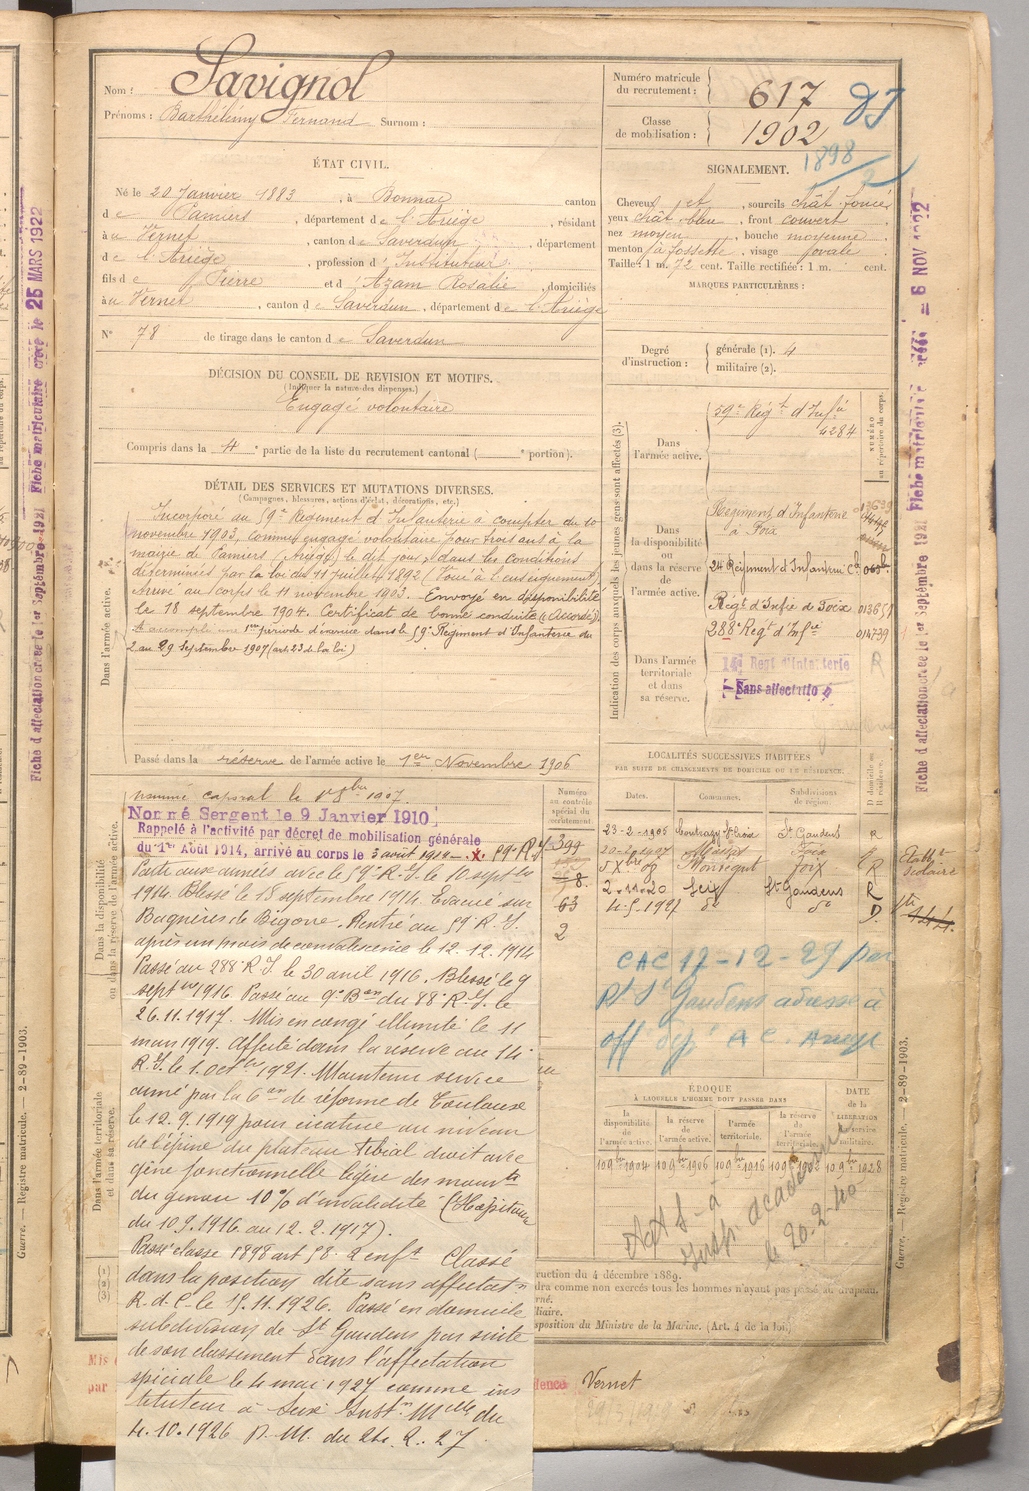 Nom : Savignol
Prénoms : Barthélémy Fernand Surnom :
Numéro matricule du recrutement : 617
Classe de mobilisation : 1902
1898
2
ÉTAT CIVIL.
Né le 20 Janvier 1883, à Bonnac canton
de Pamiers, département de l'Ariège, résidant
à u Vernet, canton de Saverdun, département
de l'Ariège, profession d'Instituteur
fils de Pierre et d'Azam Rosalie, domiciliés
à u Vernet, canton de Saverdun, département de l'Ariège
N° 78 de tirage dans le canton de Saverdun
SIGNALEMENT.
Cheveux et, sourcils chât foncé
yeux chât bleu, front couvert
nez moyen, bouche moyenne
menton à fossette, visage ovale
Taille : 1 m. 72 cent. Taille rectifiée : 1 m. cent.
MARQUES PARTICULIÈRES :
Degré d'instruction : générale (1). 4
militaire (2).
DÉCISION DU CONSEIL DE REVISION ET MOTIFS.
(Indiquer la nature des dispenses.)
Engagé volontaire
Compris dans la 4e partie de la liste du recrutement cantonal ( e portion).
DÉTAIL DES SERVICES ET MUTATIONS DIVERSES.
(Campagnes, blessures, actions d'éclat, décorations, etc.)
Dans l'armée active.
Incorporé au 59e Régiment d'Infanterie à compter du 10
novembre 1903, comme engagé volontaire pour trois ans à la
mairie de Pamiers (Ariège) le dit jour, dans les conditions
déterminées par la loi du 11 Juillet 1892 (Voué à l'enseignement)
Arrivé au corps le 11 novembre 1903. Envoyé en disponibilité
le 18 septembre 1904. Certificat de bonne conduite "Accordé".
A accompli une 1ere période d'exercice dans le 59e Régiment d'Infanterie du
2 au 29 Septembre 1907 (art. 23 de la loi)
Passé dans la réserve de l'armée active le 1er Novembre 1906
Indication des corps auxquels les jeunes gens sont affectés (3).
NUMÉRO au répertoire du corps.
Dans l'armée active.
59e Régt d'Infie
4284
Dans la disponibilité ou dans la réserve de l'armée active.
Régiment d'Infanterie
à Foix
24 Régiment d'Infanterie Cal
Régt d'Infie de Foix 013651
288e Régt d'Infie 014739
Dans l'armée territoriale et dans sa réserve.
14e Regt d'Infanterie R
Sans affectation
Dans la disponibilité ou dans la réserve de l'armée active.
nommé caporal le 1er 8bre 1907.
Nommé Sergent le 9 Janvier 1910
Rappelé à l'activité par décret de mobilisation générale
du 1er Août 1914, arrivé au corps le 3 août 1914 59e R.I
Parti aux armées avec le 59e R.I. le 10 septbre
1914. Blessé le 18 septembre 1914. Evacué sur
Bagnères de Bigorre. Rentré au 59e R.I.
après un mois de convalescence le 12.12.1914
Passé au 288 R.I. le 30 avril 1916. Blessé le 9
septbre 1916. Passé au 9e Bon du 88e R.I. le
26.11.1917. Mis en congé illimité le 11
mars 1919. Affecté dans la réserve au 14e
R.I. le 1. octbre 1921. Maintenu service
armé par la 6e on de réforme de Toulouse
le 12.9.1919 pour cicatrice au niveau
de l'épine du plateau tibial droit avec
gêne fonctionnelle légère des mouvts
du genou 10% d'invalidité (Hôpitaux
du 10.9.1916 au 12.2.1917).
Passé classe 1898 art 58. 2 enfts Classé
dans la position dite sans affectation
R.d.C. le 15.11.1926. Passé en domicile
subdivision de St Gaudens par suite
de son classement dans l'affectation
spéciale le 4 mai 1927 comme ins
tituteur à Seix Instn Mlle du
4.10.1926 P.M. du 24.2.27.
Dans l'armée territoriale et dans sa réserve.
Numéro au contrôle spécial du recrutement.
399
8.
63
2
LOCALITÉS SUCCESSIVES HABITÉES
PAR SUITE DE CHANGEMENTS DE DOMICILE OU DE RÉSIDENCE.
Dates. Communes. Subdivisions de région. D domicile ou R résidence.
23-2-1906 Contrazy-Ste Croix St Gaudens R
20-2-1907 Foix
5 Xbre 09 Montégut Foix R
2-11-20 Seix St Gaudens R
4-5-1927 do do D.
CAC 17-12-29 par
Rt St Gaudens adressé à
ÉPOQUE
À LAQUELLE L'HOMME DOIT PASSER DANS
la disponibilité de l'armée active.
la réserve de l'armée active.
l'armée territoriale.
la réserve de l'armée territoriale.
DATE de la LIBÉRATION du service militaire.
10 9bre 1904 10 9bre 1906 10 9bre 1916 10 9bre 1928
Insp. académique
le 20-2-40
(1)
(2)
(3)
ruction du 4 décembre 1889.
dra comme non exercés tous les hommes n'ayant pas passé au drapeau.
rné.
iliaire.
sposition du Ministre de la Marine. (Art. 4 de la loi.)
Mis
par
dence Vernet
Guerre. — Registre matricule. — 2-89-1903.
Guerre. — Registre matricule. — 2-89-1903.
Fiche d'affectation créée le 1er Septembre 1921 Fiche matriculaire créée le 25 MARS 1922
Fiche d'affectation créée le 1er Septembre 1921 Fiche matriculaire créée le 6 NOV 1922